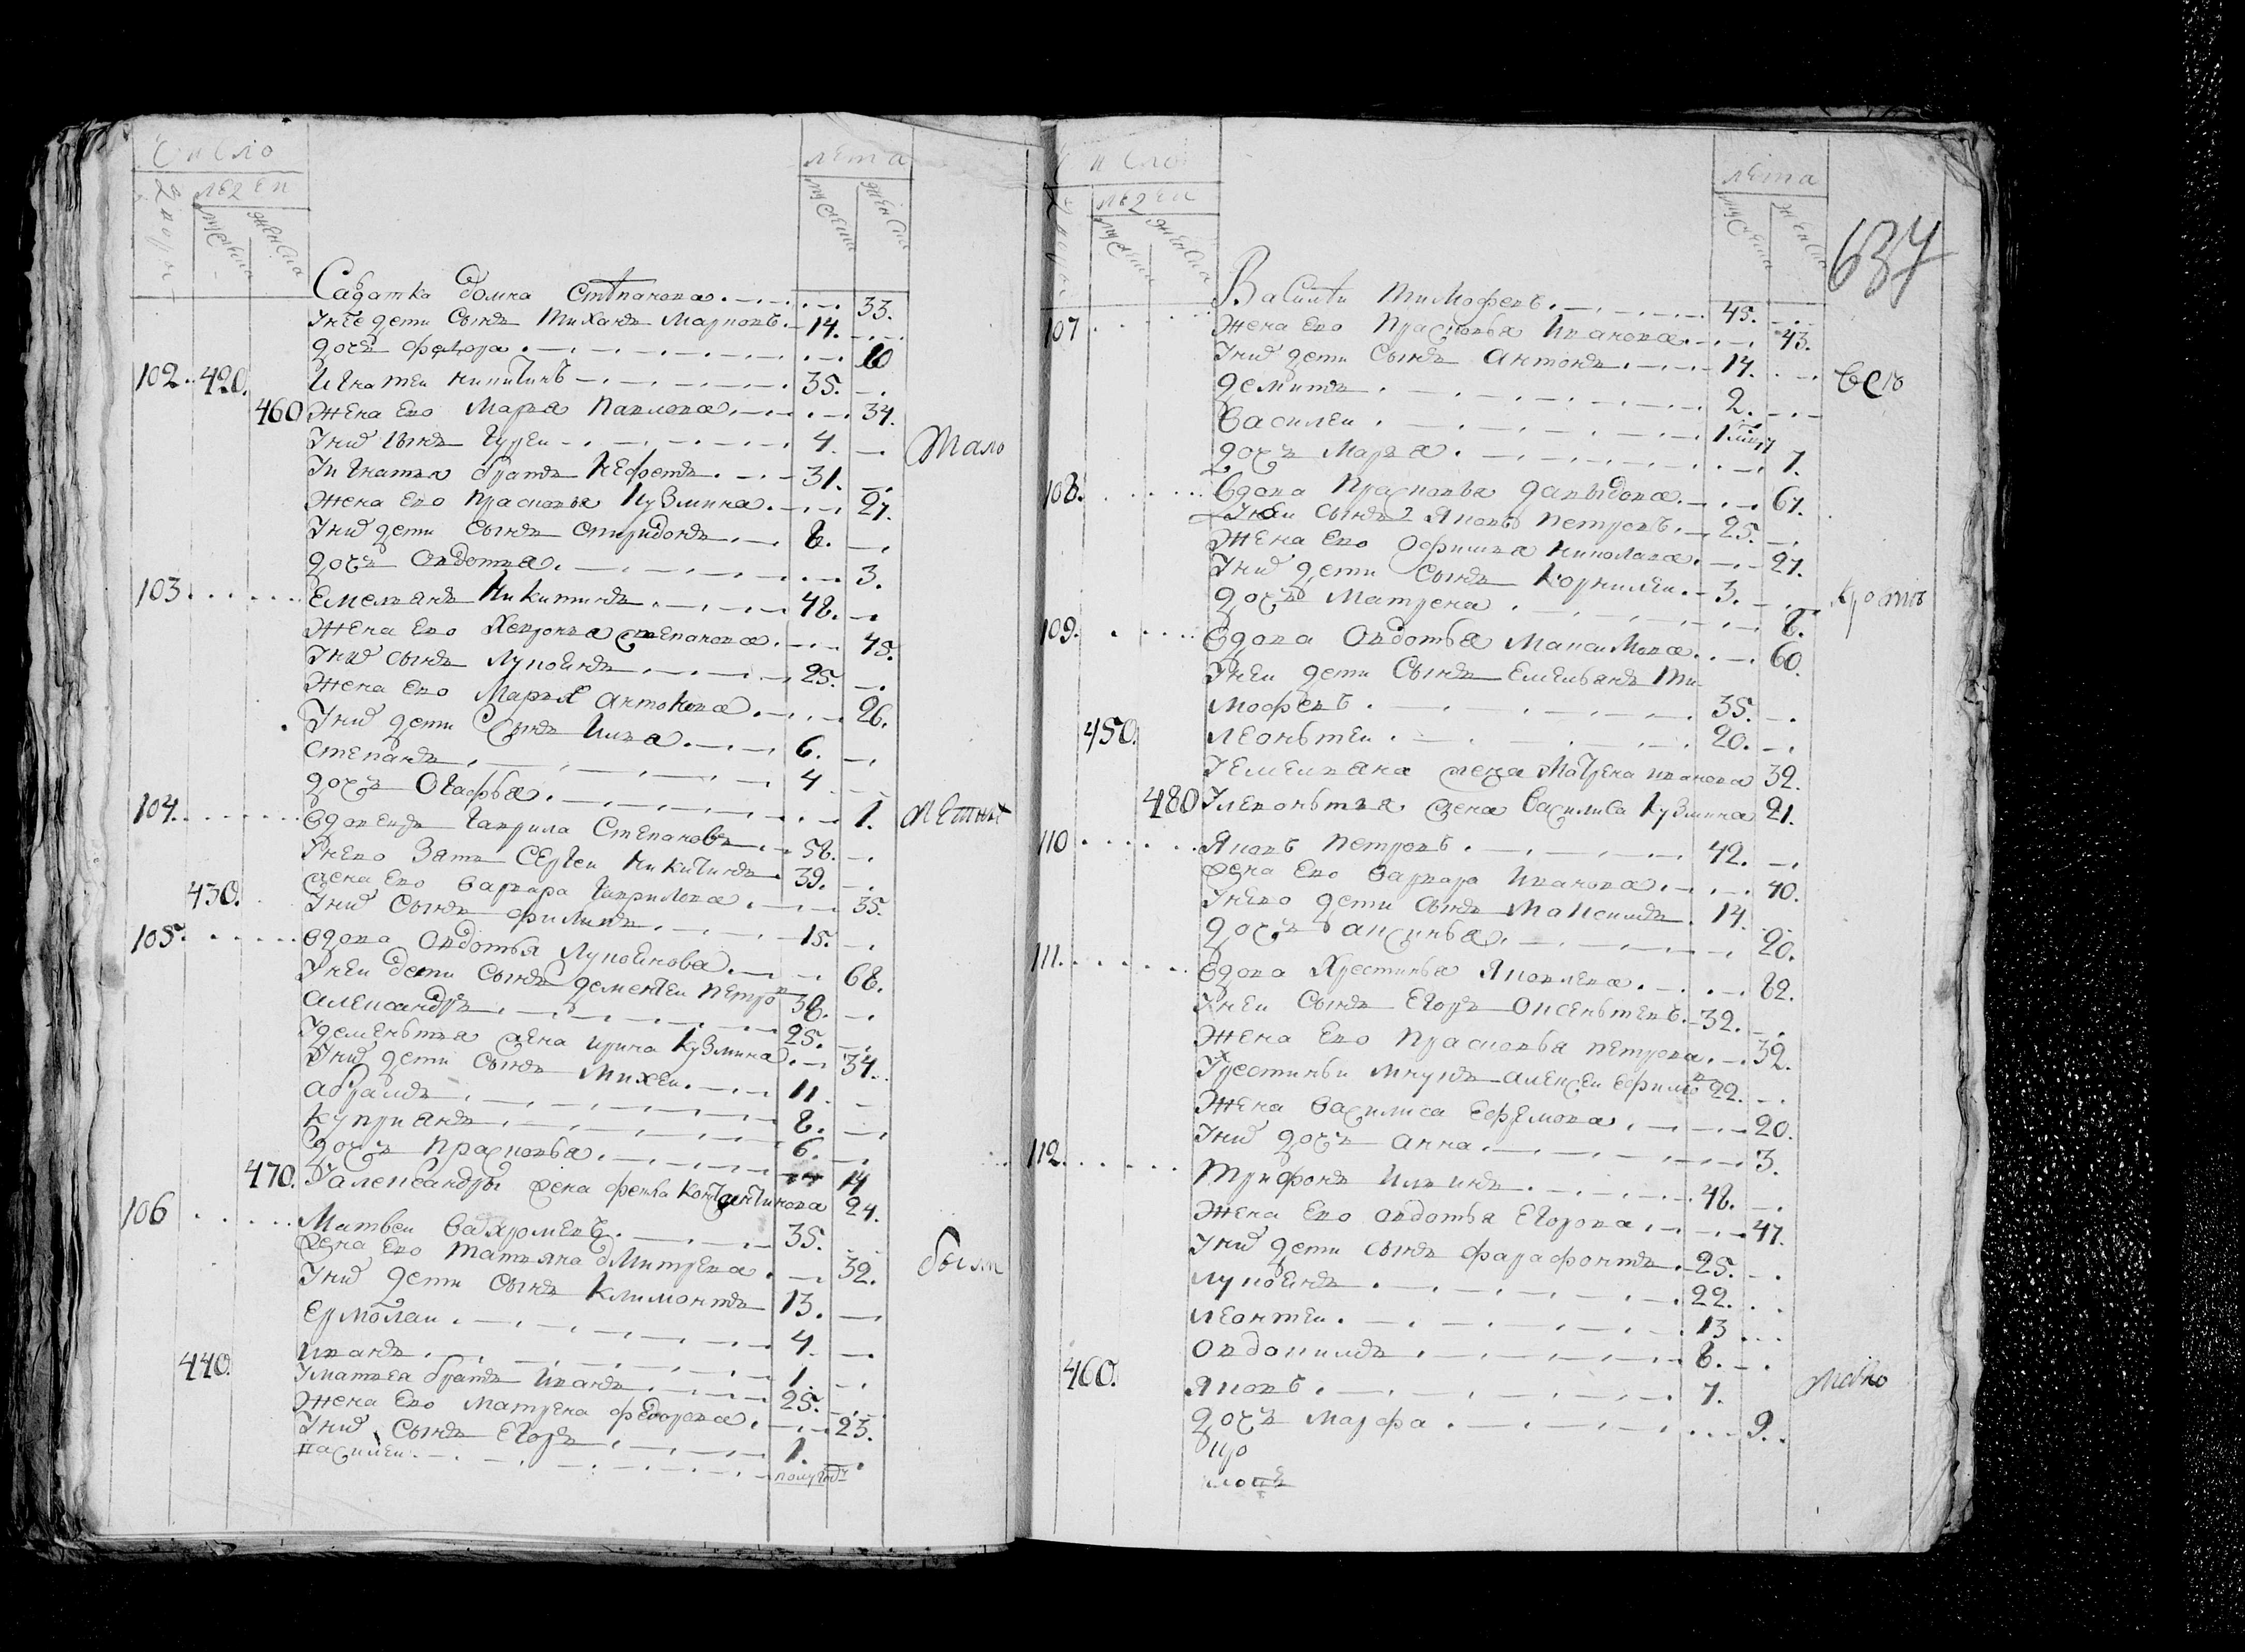 Число
людей
лета
Салдатка Домна Степанова 33.
Унее дети сынъ Тиханъ Марковъ 14.
дочь Федора 10
102. 420. Игнатей Никитинъ 35.
460 жена ево Марья Павлова 34.
Уних сынъ Гурей 4.
Уигнатья братъ Нефетъ 31.
жена ево Прасковья Кузмина 27.
Уних дети сынъ Спиридонъ 8.
дочь Овдотья 3.
103. Емельянъ Никитинъ 48.
жена ево степанова 45.
Уних сынъ Лупоянъ 25.
жена ево Марья Антонова 26.
Уних дети сынъ Илья 6.
Степанъ 4
дочь Огафья 1.
104. вдовецъ Гаврила Степановъ 58.
Унево зять Сергей Никитинъ 39.
жена ево Варвара Гаврилова 35.
430. Уних сынъ Филипъ 15.
105. вдова Овдотья Лупоянова 68.
Уней дети сынъ Дементей Петров 38.
Александръ 25.
Удеменьтья жена Ирина Кузмина 34.
Уних дети сынъ Михей 11.
Абрамъ 8.
Куприянъ 6.
дочь Прасковья 14
470. Уалександры жена Фекла Констянтинова 24.
106 Матвей Вахромеевъ 35.
жена ево Татьяна Дмитрева 32.
Уних дети сынъ Климонтъ 13.
Ермолаи 4.
440. Иванъ 1.
Уматвея братъ Иванъ 25.
жена ево Матрена Федорова 23.
Уних сынъ Егоръ 1.
василеи полугоду
число
людей
лета
637
Василей Тимофеевъ 45.
107 жена ево Прасковья Иванова 43.
Уних дети сынъ Антонъ 14.
Демитъ 2.
Василей 1
дочь Марья 7.
108. вдова Прасковья Давыдова 67.
Уней сынъ Яковъ Петровъ 25.
жена ево Офимья Николаева 27.
Уних дети сынъ Корнилеи 3.
дочь Матрена 8.
109. вдова Овдотья Максимова 60.
Уней дети сынъ Емельянъ Ти-
мофеевъ 35.
450. Леоньтеи 20.
Уемельяна жена Матрена Иванова 32.
480 Улевоньтья жена Василиса Кузмина 21.
110 Яковъ Петровъ 42.
жена ево Варвара Иванова 40.
Унево дети сынъ Максимъ 14.
дочь Аксинья 20.
111. вдова Хрестинья Яковлева 82.
Уней сынъ Егоръ Оксеньтевъ 32.
жена ево Прасковья Петрова 32.
Ухрестиньи внукъ Алексеи Ефимов 22.
жена Василиса Ефремова 20.
Уних дочь Анна 3.
112. Трифонъ Ильинъ 48.
жена ево Овдотья Егорова 47.
Уних дети сынъ Фарафонтъ 25.
Лупоянъ 22.
Леонтеи 13
Овдокимъ 8.
460. Яковъ 7.
дочь Марфа 9.